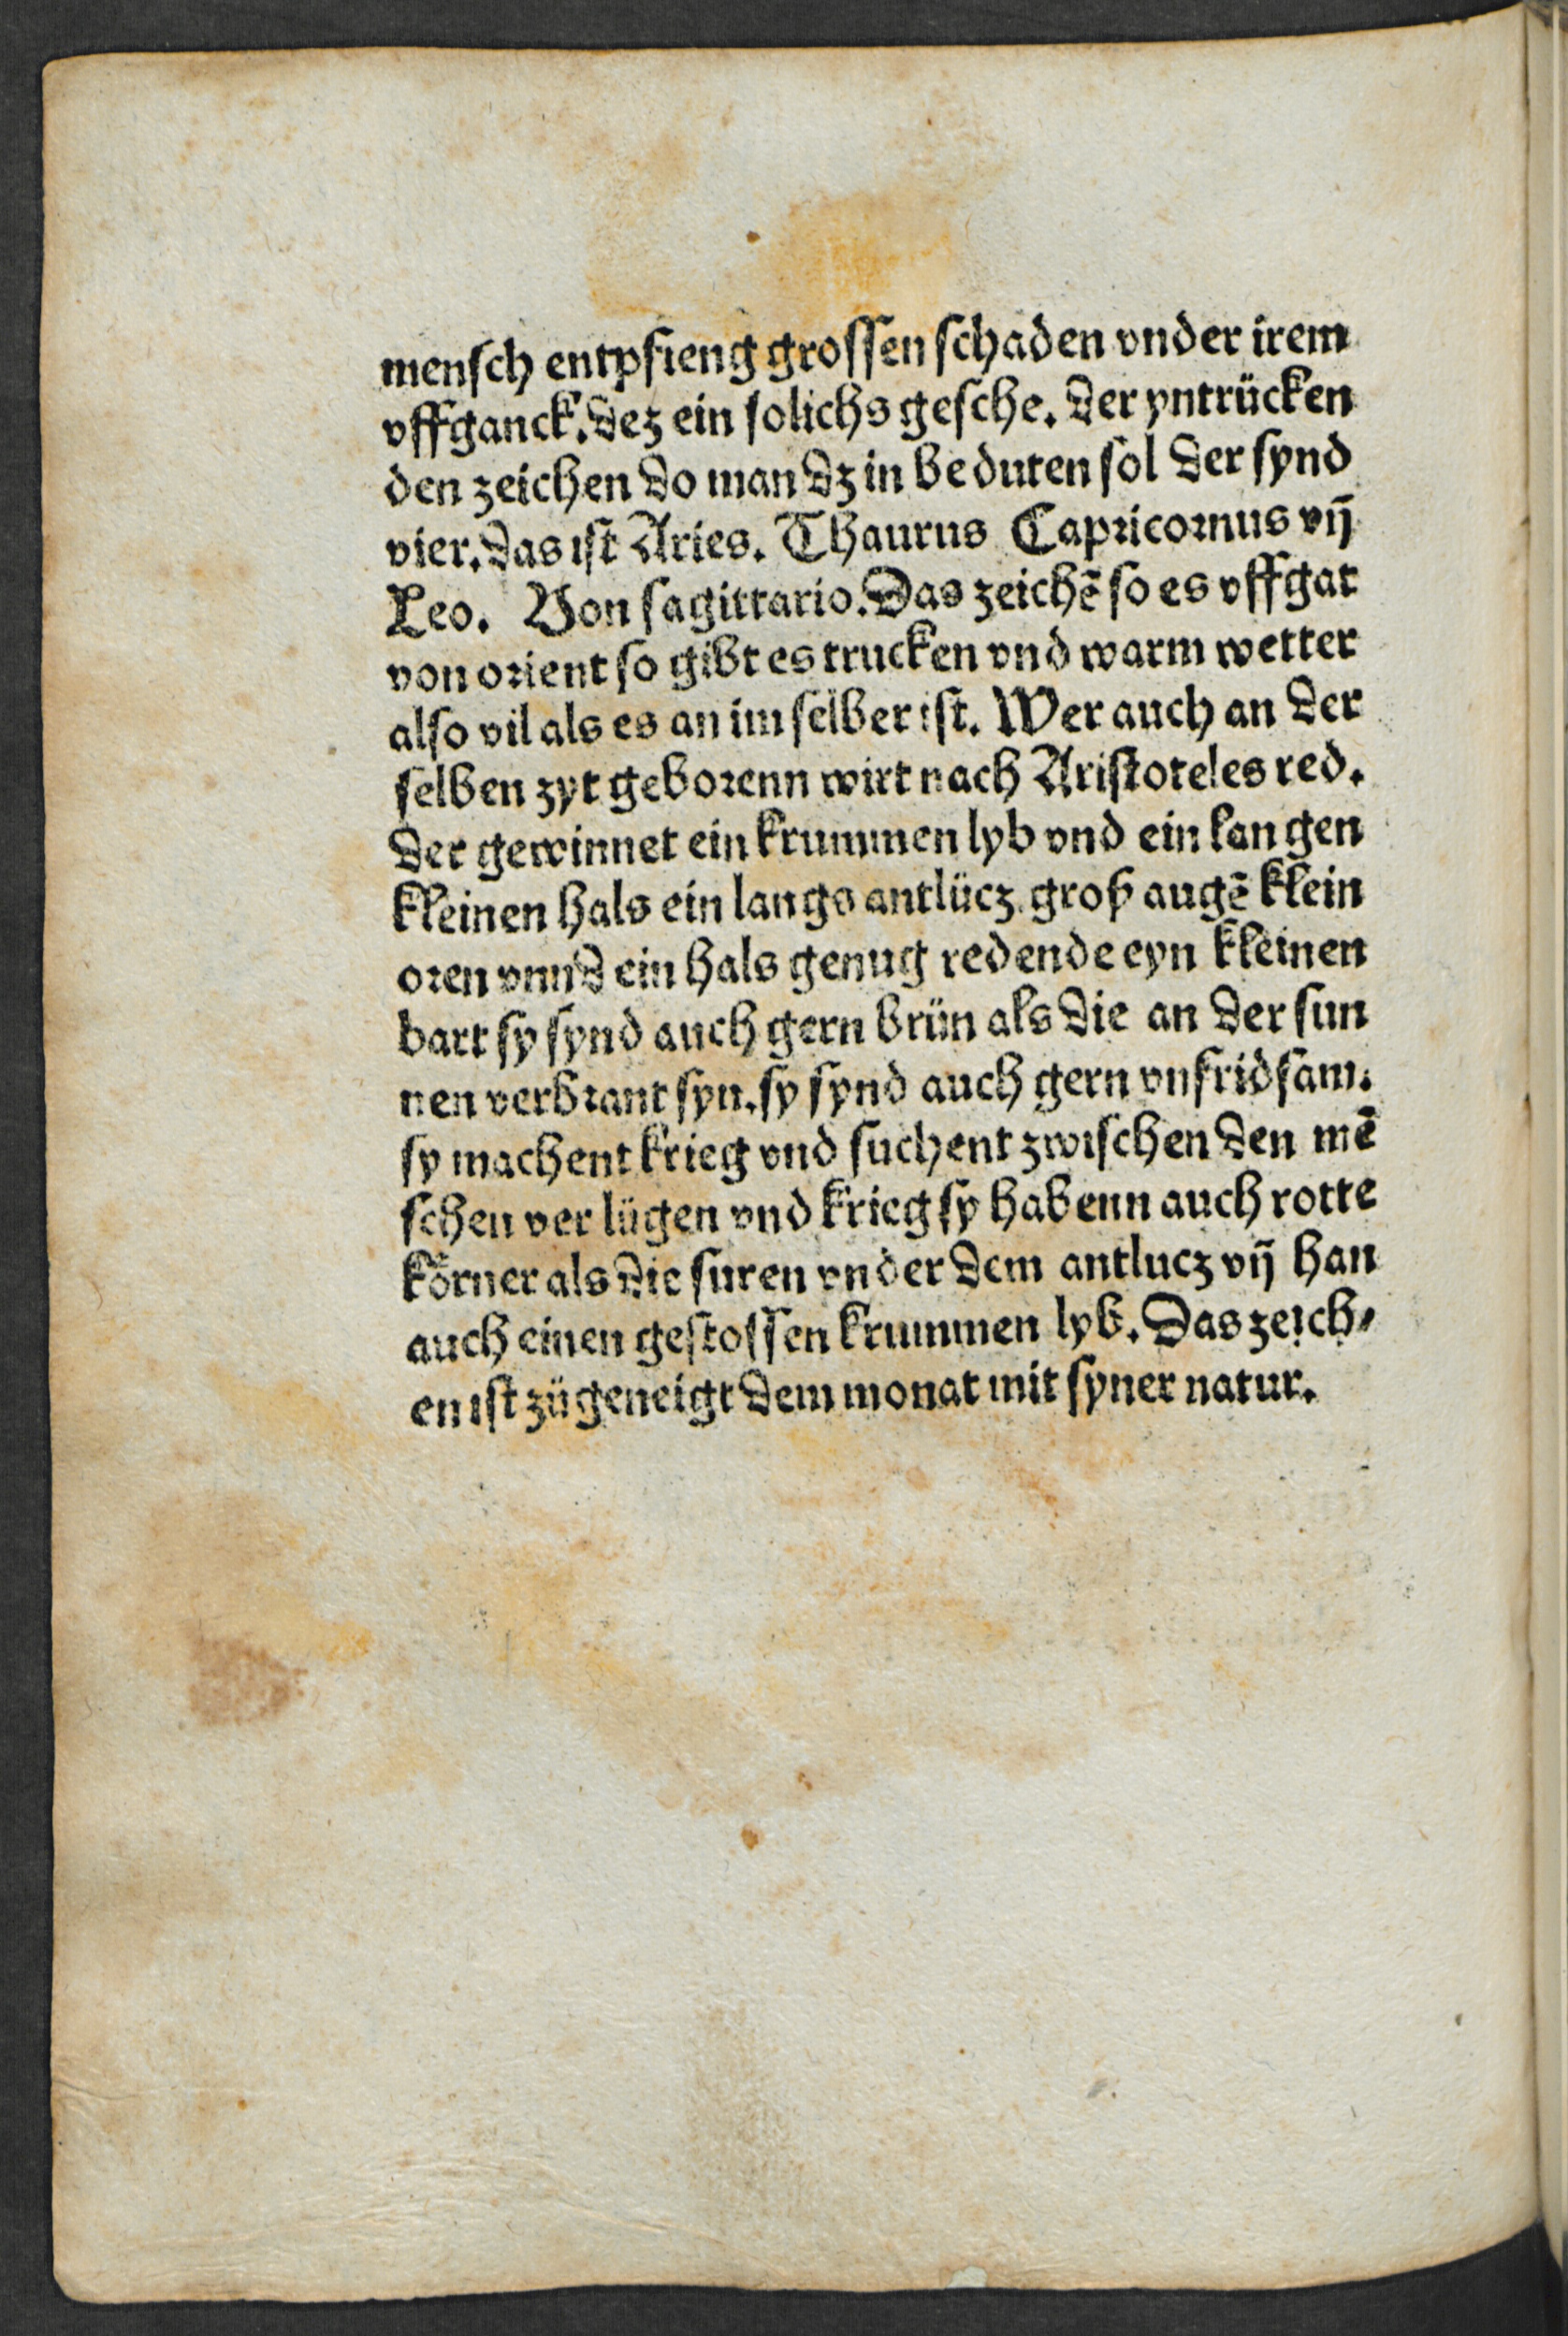 menſch entpfieng groſſen ſchaden vnder irem
vffganck. dez ein ſolichs geſche. der yntrücken
den zeichen do man dz in beduten ſol der ſynd
vier. das iſt Aries. Thaurus Capꝛicoꝛnus vñ
Leo. Von ſagittario. Das zeichē ſo es vffgat
von oꝛient ſo gibt es trucken vnd warm wetter
alſo vil als es an im ſelber iſt. Wer auch an der
ſelben zyt geboꝛenn wirt nach Ariſtoteles red.
der gewinnet ein krummen lyb vnd ein langen
kleinen hals ein langs antlücz groß augē klein
oꝛen vnnd ein hals genug redende eyn kleinen
bart ſy ſynd auch gern brün als die an der ſun
nen verbꝛant ſyn. ſy ſynd auch gern vnfridſam.
ſy machent krieg vnd ſuchent zwiſchen den mē
ſchen ver lügen vnd krieg ſy habenn auch rotte
körner als die ſuren vnder dem antlucz vñ han
auch einen geſtoſſen krummen lyb. Das zeich⸗
en iſt zügeneigt dem monat mit ſyner natur.